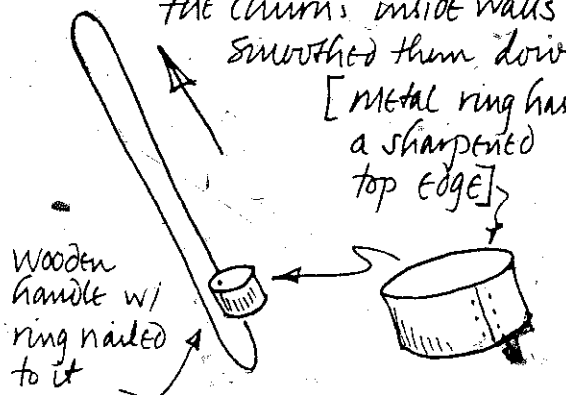 the churn's inside walls
smoothed them down
[metal ring has
a sharpened
top edge]
wooden
handle w/
ring nailed
to it